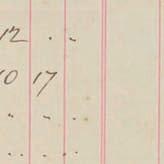 12 . „
10 17
„ „ „
. . . .